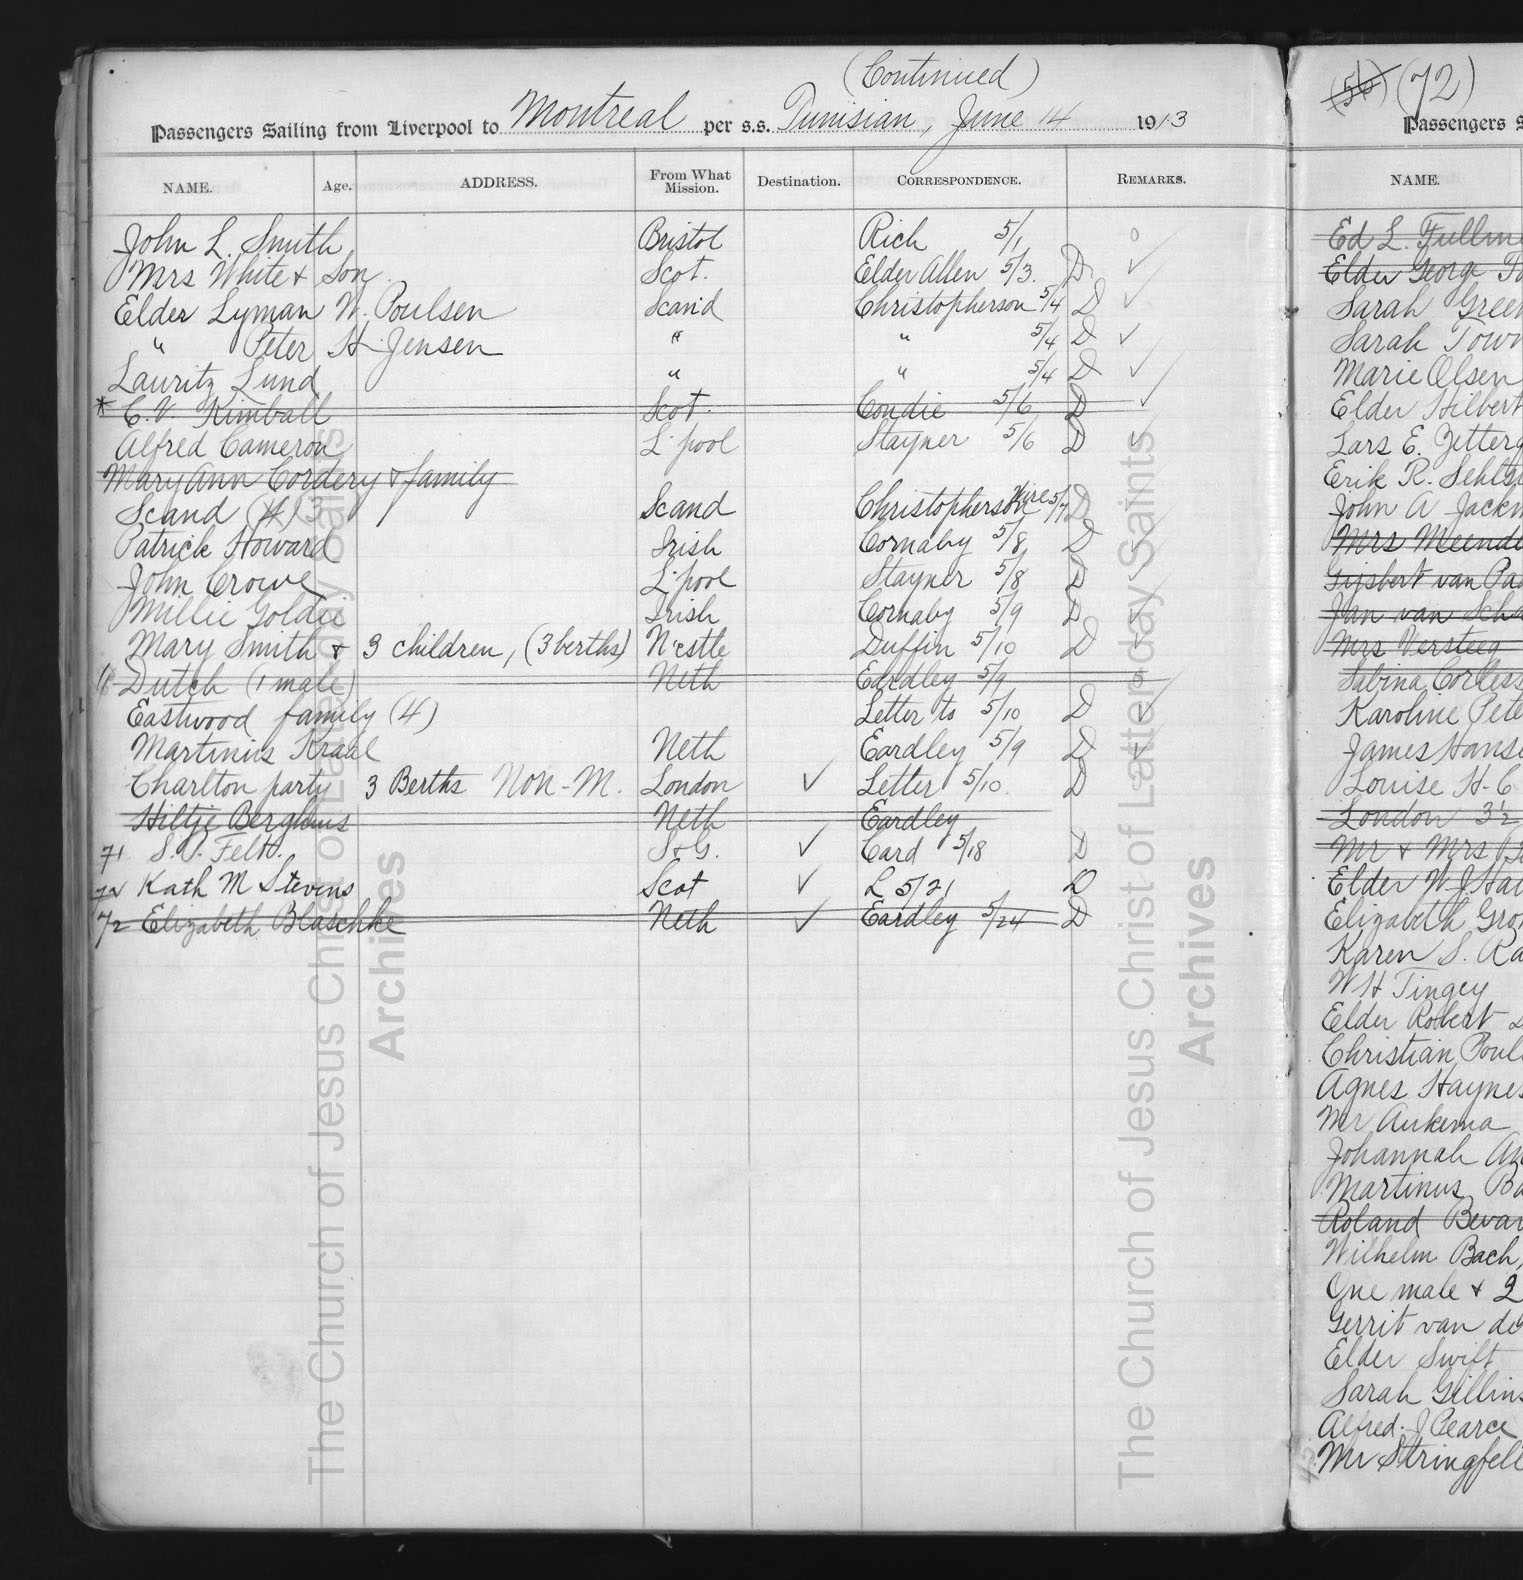 (Continued)
Passengers Sailing from Liverpool to Montreal per s.s. Tunisian, June 14 1913
NAME. Age. ADDRESS. From What Mission. Destination. CORRESPONDENCE. REMARKS.
John L. Smith Bristol Rich 5/1
Mrs White & Son Scot. Elder Allen 5/3 D ✓
Elder Lyman W. Poulsen Scand Christopherson 5/4 D ✓
" Peter H. Jensen " " 5/4 D ✓
Lauritz Lund " " 5/4 D ✓
* C.V. Kimball Scot. Condie 5/6 D ✓
Alfred Cameron L'pool Stayner 5/6 D ✓
Mary Ann Cordery & family
Scand (4) 3 Scand Christopherson Wire 5/7 D
Patrick Howard Irish Cornaby 5/8 D
John Crowe L'pool Stayner 5/8 D
Millie Goldie Irish Cornaby 5/9 D
Mary Smith & 3 children, (3 berths) N'cstle Duffin 5/10 D
Dutch (1 male) Neth Eardley 5/9
Eastwood family (4) Letter to 5/10 D ✓
Martinus Kraal Neth Eardley 5/9 D
Charlton party 3 Berths Non-M. London ✓ Letter 5/10 D
Hiltje Berghuis Neth Eardley
71 S. Felt. S&G. ✓ Card 5/18 D
72 Kath M Stevens Scot ✓ L 5/21 D
72 Elizabeth Blaschke Neth ✓ Eardley 5/24 D
(56) (72)
Passengers S
NAME.
Ed L. Fullme
Elder George
Sarah Green
Sarah Town
Marie Olsen
Elder Hilbert
Lars E. Zetterg
Erik R. Sehlst
John A Jackm
Mrs Meende
Gijsbert van Pa
Jan van Scha
Mrs Versteeg
Sabina Corless
Karoline Pete
James Hanse
Louise H. C
London 3½
Mr & Mrs
Elder W. J. Hal
Elizabeth Gron
Karen S. Ra
W H Tingey
Elder Robert
Christian Pouls
Agnes Haynes
Mr Aukema
Johannah An
Martinus Ba
Roland Bevan
Wilhelm Bach,
One male & 2
Gerrit van de
Elder Swift
Sarah Gillins
Alfred J Pearce
Mr Stringfell
The Church of Jesus Christ of Latter-day Saints
Archives
The Church of Jesus Christ of Latter-day Saints
Archives